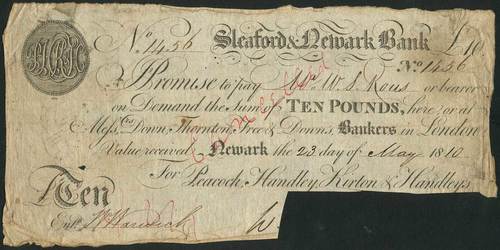 No. 1456 Sleaford & Newark Bank £10
No. 1456
I Promise to pay Mr. W. S. Rous or bearer
on Demand the Sum of TEN POUNDS, here or at
Messrs. Down, Thornton, Free & Downs, Bankers in London
Value received Newark the 23 day of May 1810
For Peacock, Handley, Kirton & Handleys
£Ten
Entd.